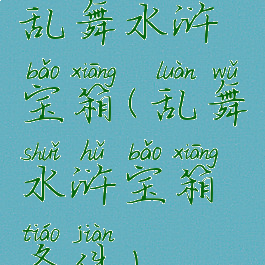 乱舞水浒
bǎo xiāng luàn wǔ
宝箱(乱舞
shuǐ hǔ bǎo xiāng
水浒宝箱
tiáo jiàn
条件)